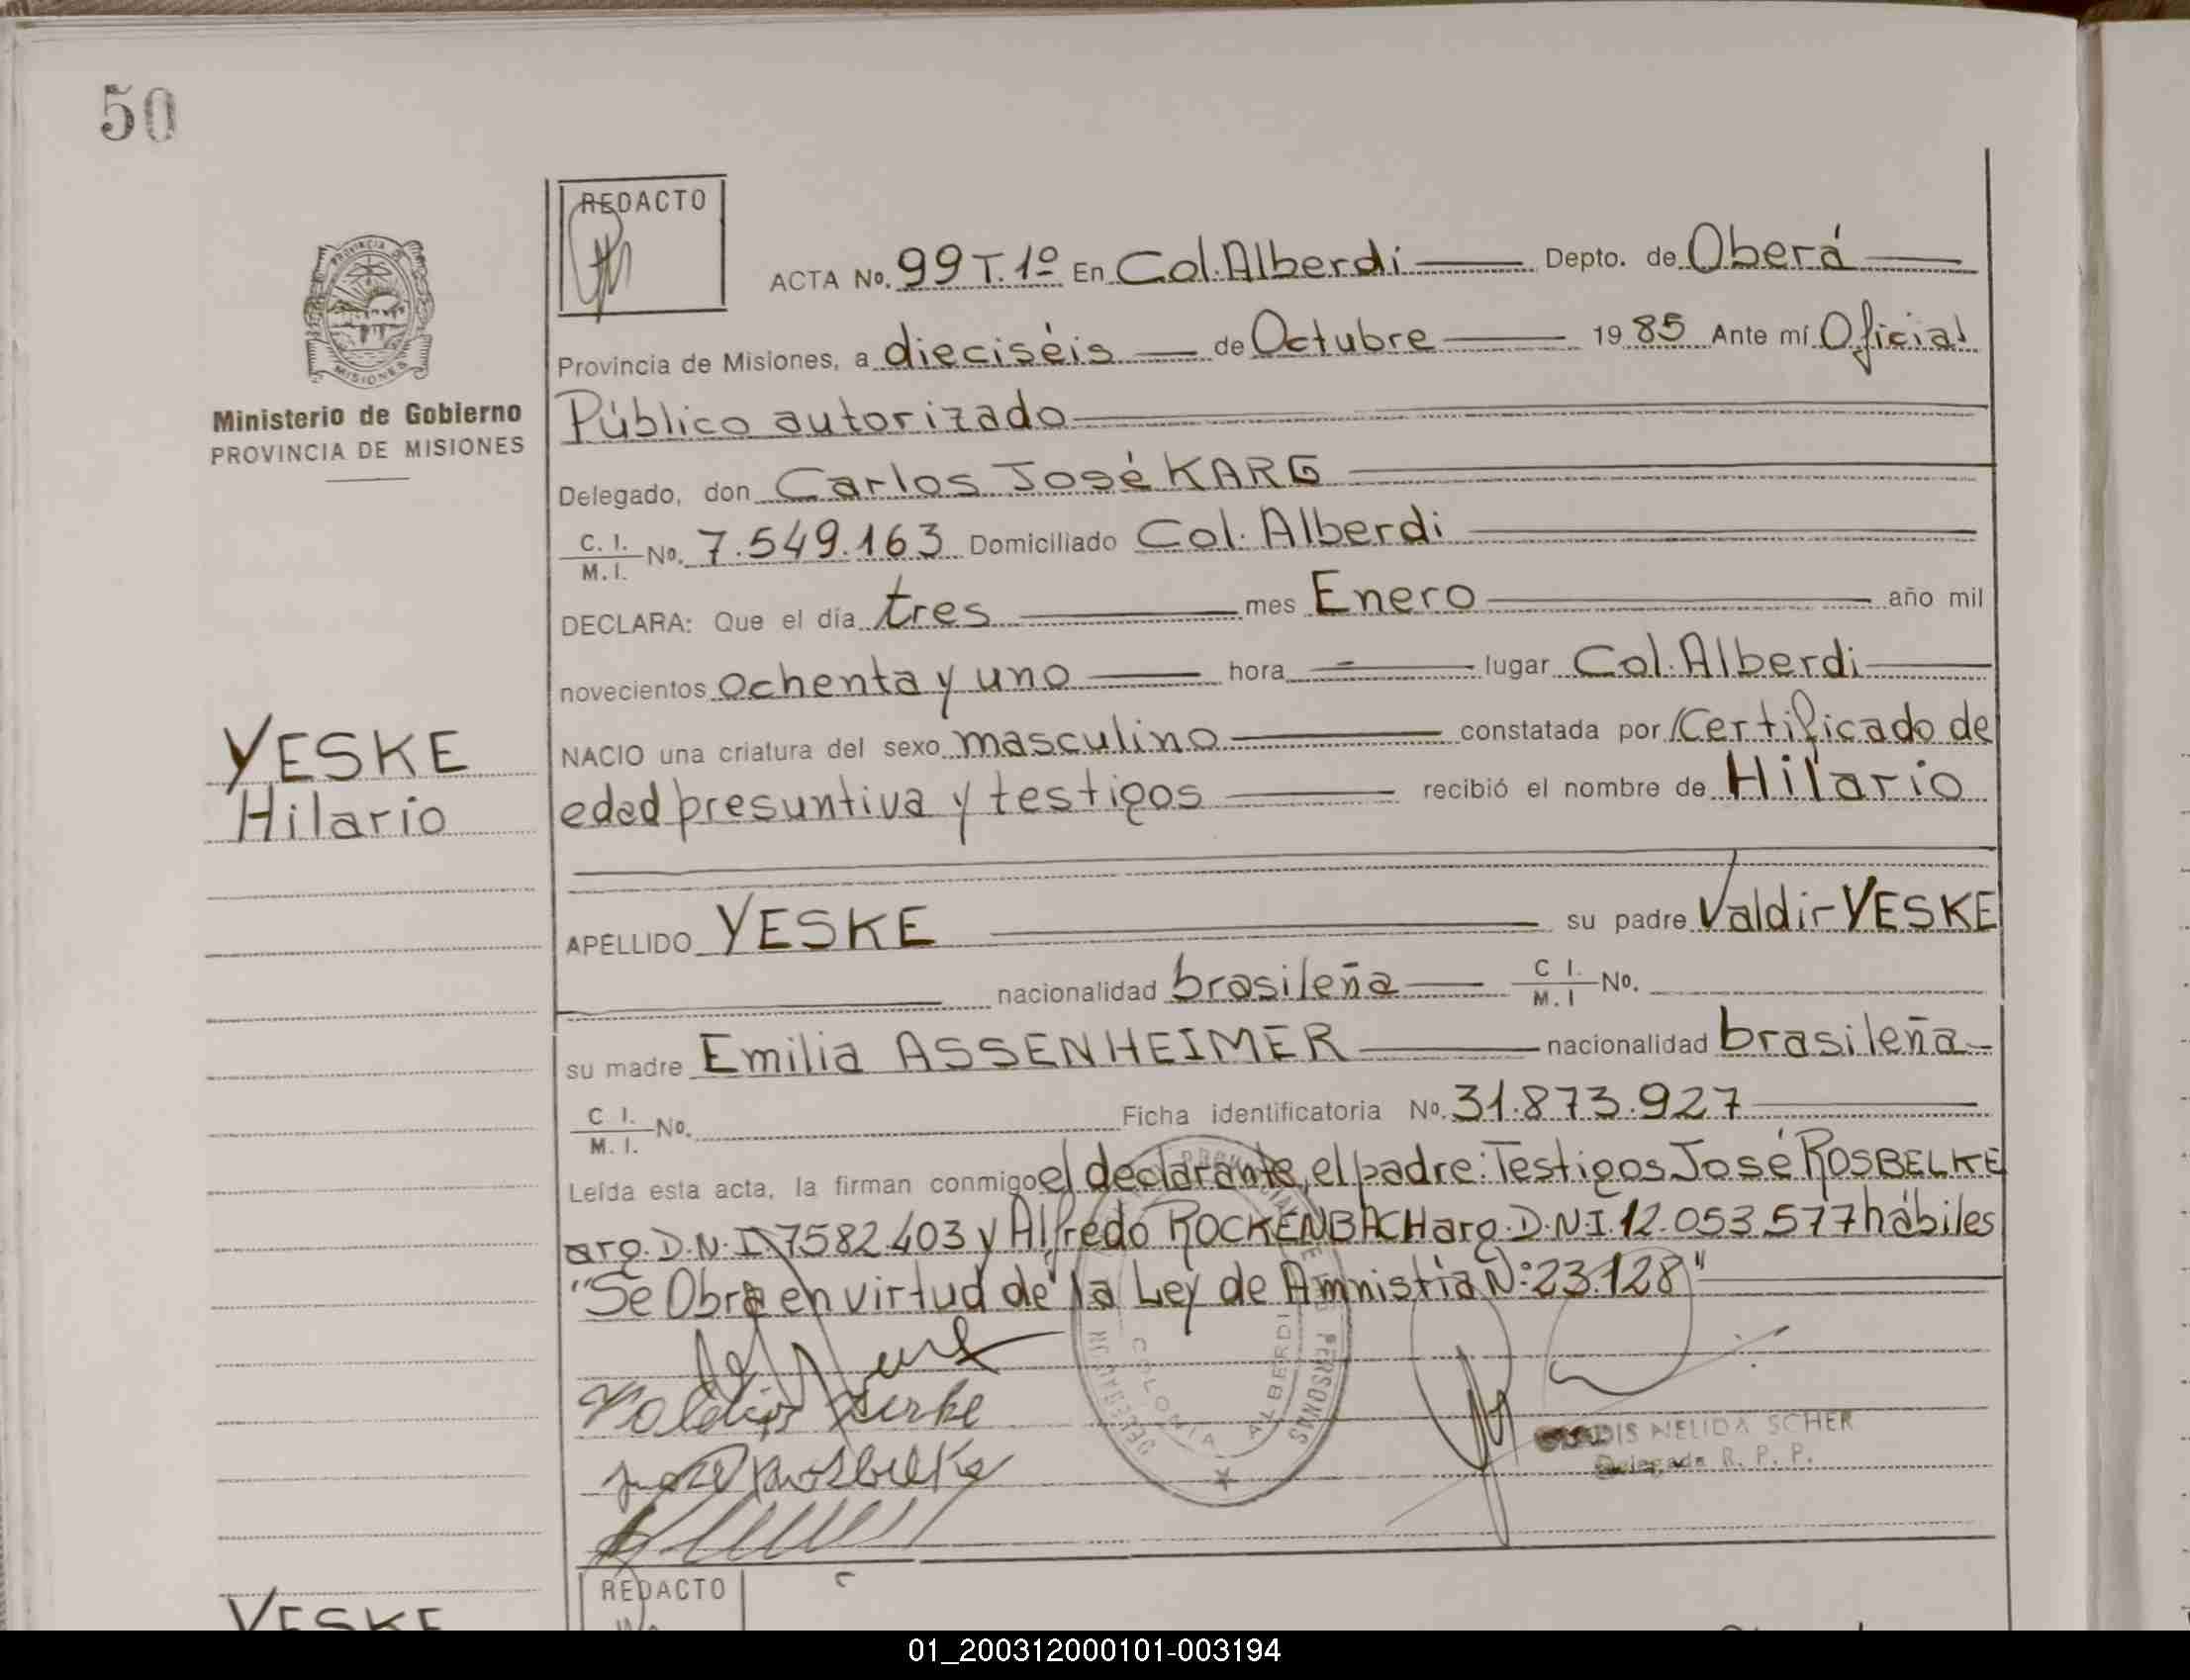 50
REDACTO
ACTA No. 99 T. 1º En Col. Alberdi Depto. de Oberá
Provincia de Misiones, a dieciséis de Octubre 1985 Ante mí Oficial
Público autorizado
PROVINCIA DE
MISIONES
Ministerio de Gobierno
PROVINCIA DE MISIONES
Delegado, don Carlos José KARG
C. I. / M. I. No. 7.549.163 Domiciliado Col. Alberdi
DECLARA: Que el día tres mes Enero año mil
novecientos ochenta y uno hora lugar Col. Alberdi
NACIO una criatura del sexo masculino constatada por Certificado de
YESKE
Hilario
edad presuntiva y testigos recibió el nombre de Hilario
APELLIDO YESKE su padre Valdir YESKE
nacionalidad brasileña C I. / M. I No.
su madre Emilia ASSENHEIMER nacionalidad brasileña
C I. / M. I. No. Ficha identificatoria No. 31.873.927
Leída esta acta, la firman conmigo el declarante, el padre: Testigos José ROSBELKE
arg. D.N.I. 7582403 y Alfredo ROCKENBACH arg. D.N.I. 12.053.577 hábiles
"Se Obra en virtud de la Ley de Amnistía Nº 23.128"
COLONIA ALBERDI
PERSONAS
NELIDA SCHER
Delegada R. P. P.
REDACTO
YESKE
01_200312000101-003194